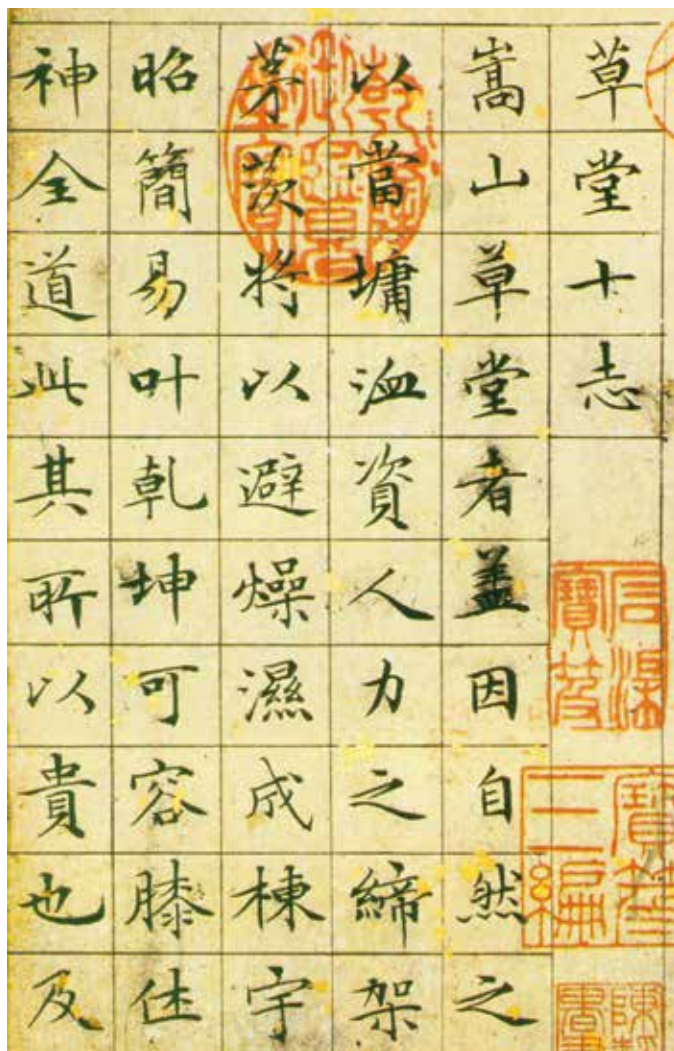 草堂十志
嵩山草堂者盖因自然之
以當墉洫資人力之締架
茅茨将以避燥濕成棟宇
昭簡易叶乾坤可容膝休
神全道此其所以貴也及
乾隆御覽之寶
石渠寶笈
寶笈三編